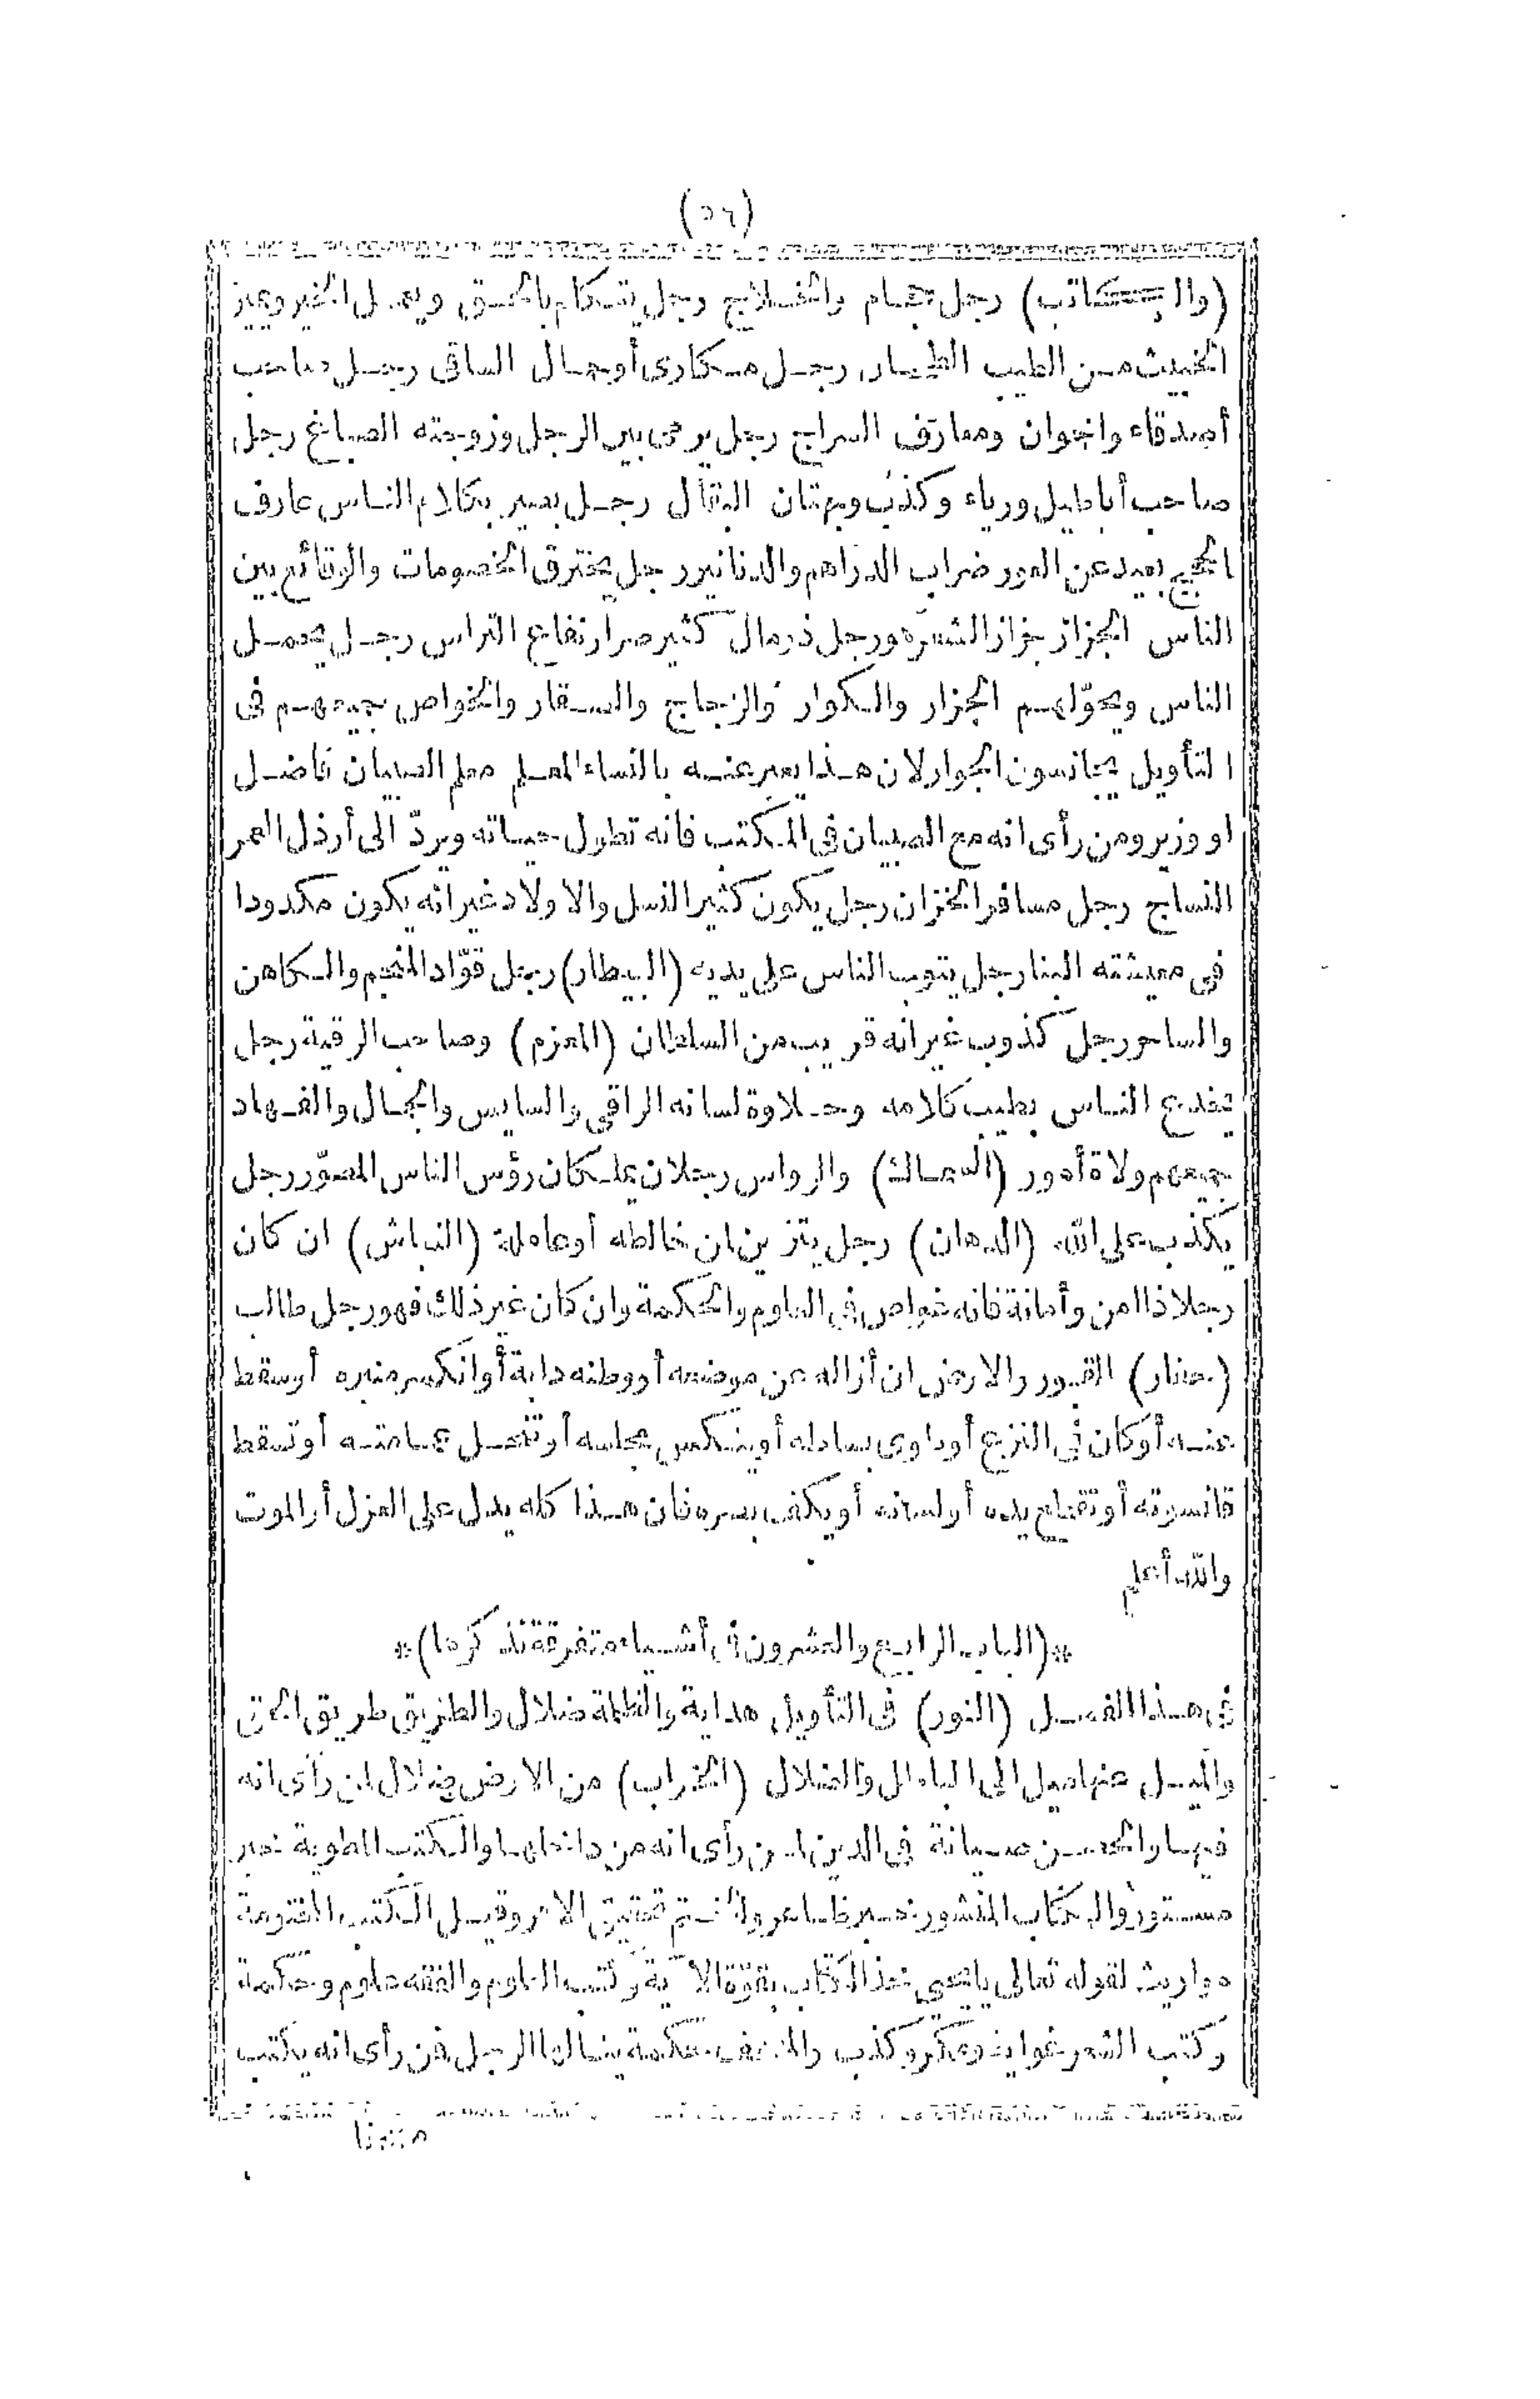 (٥٦)
(والكاتب) رجل حجام والفلاح رجل يتكلم بالحق ويعمل الخير ويميز
الخبيث من الطيب الطيار رجل مكارى أو جمال الساقى رجل صاحب
أصدقاء واخوان ومعارف السراج رجل بين الرجل وزوجته الصباغ رجل
صاحب أباطيل ورياء وكذب وبهتان البقال رجل بصير بكلام الناس عارف
الحجج بعيد عن العور ضراب الدراهم والدنانير رجل يخترق الخصومات والوقائع بين
الناس الجزاز جزاز الشعر هو رجل ذو مال كثير ضرار نفاع التراس رجل يحمل
الناس ويحوّلهم الجزار والكوار والزجاج والسقار والخواص جميعهم فى
التأويل يجانسون الجوار لان هذا يعبر عنه بالنساء المعلم معلم الصبيان فاضل
او وزير ومن رأى انه مع الصبيان فى المكتب فانه تطول حياته ويردّ الى أرذل العمر
النساج رجل مسافر الخزان رجل يكون كثير النسل والاولاد غير انه يكون مكدودا
فى معيشته البنا رجل يتوب الناس على يديه (البيطار) رجل قوّاد المنجم والكاهن
والساحر رجل كذوب غير انه قريب من السلطان (المعزم) وصاحب الرقية رجل
يخدع الناس بطيب كلامه وحلاوة لسانه الراقى والسايس والجمال والفهاد
جميعهم ولاة أمور (السماك) والرواس رجلان يملكان رؤس الناس المصوّر رجل
يكذب على الله (الدهان) رجل يتزين ان خالطه أو عامله (النباش) ان كان
رجلا ذا امن وأمانة فانه غواص فى العلوم والحكمة وان كان غير ذلك فهو رجل طالب
القبور والارض ان أزاله عن موضعه أو وطئه دابة أو انكسر منبره أو سقط
عنه أو كان فى النزع أو ينكس مجلسه أو تنحل عمامته أو تسقط
قلنسوته أو تقطع يده أو لسانه أو يكف بصره فان هذا كله يدل على العزل أو الموت
والله أعلم
*(الباب الرابع والعشرون فى أشياء متفرقة نذكرها)*
فى هذا الفصل (النور) فى التأويل هداية والظلمة ضلال والطريق طريق الحق
والميل عنها ميل الى الباطل والضلال (الخراب) من الارض ضلال لمن رأى انه
فيها والحصن صيانة فى الدين لمن رأى انه من داخلها والكتب المطوية خبر
مستور والكتاب المنشور خبر ظاهر والختم تحقيق الامر وقيل الكتب المختومة
مواريث لقوله تعالى يا يحيى خذ الكتاب بقوّة الآية وكتب العلوم والفقه علوم وحكمة
وكتب الشعر غواية ومكر وكذب والمصحف حكمة ينالها الرجل فمن رأى انه يكتب